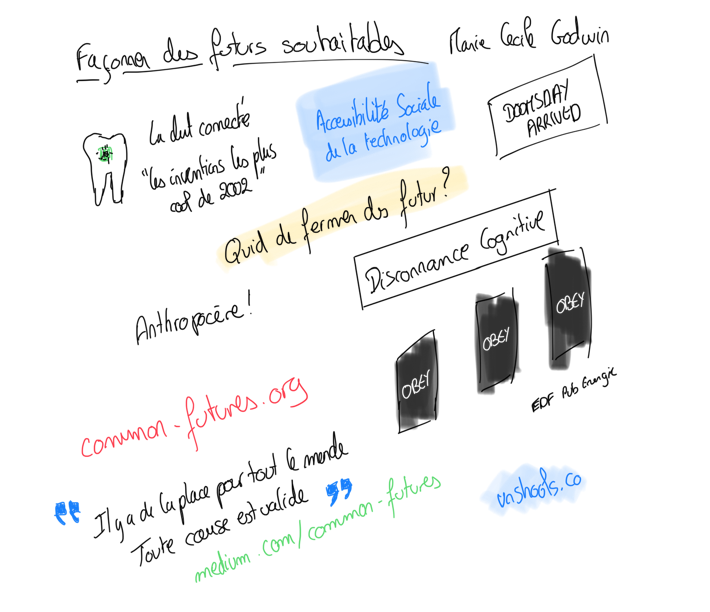 Façonner des futurs souhaitables
Marie Cecile Godwin
La dent connecté
"Les inventions les plus
cool de 2002!"
Accessibilité Sociale
de la technologie
DOOMSDAY
ARRIVED
Quid de fermer des futur?
Disconnance Cognitive
Anthropocère!
OBEY
OBEY
OBEY
EDF Pub Energie
common-futures.org
" Il y a de la place pour tout le monde
Toute cause est valide "
medium.com/common-futures